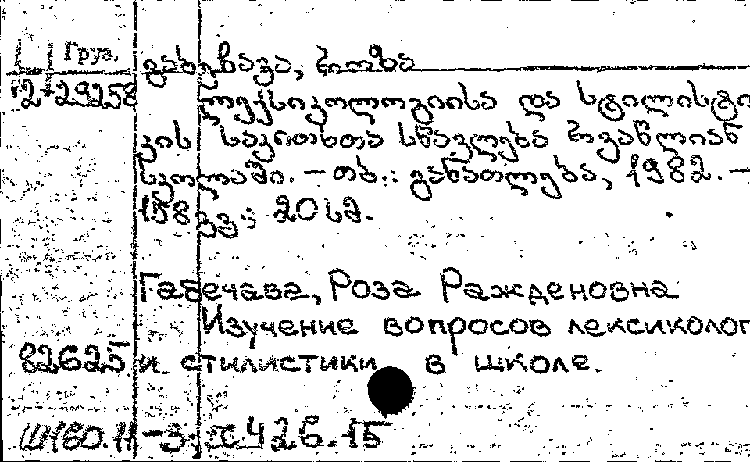 Груз.
გაბეჩავა, როზა
2-29258 ლექსიკოლოგიისა და სტილისტი
კის საკითხთა სწავლება რვაწლიან
სკოლაში. – თბ.: განათლება, 1982. –
158 გვ.; 20 სმ.
Габечава, Роза Ражденовна
Изучение вопросов лексиколог
82625 и стилистики в школе.
Ш160.11-3
426.15